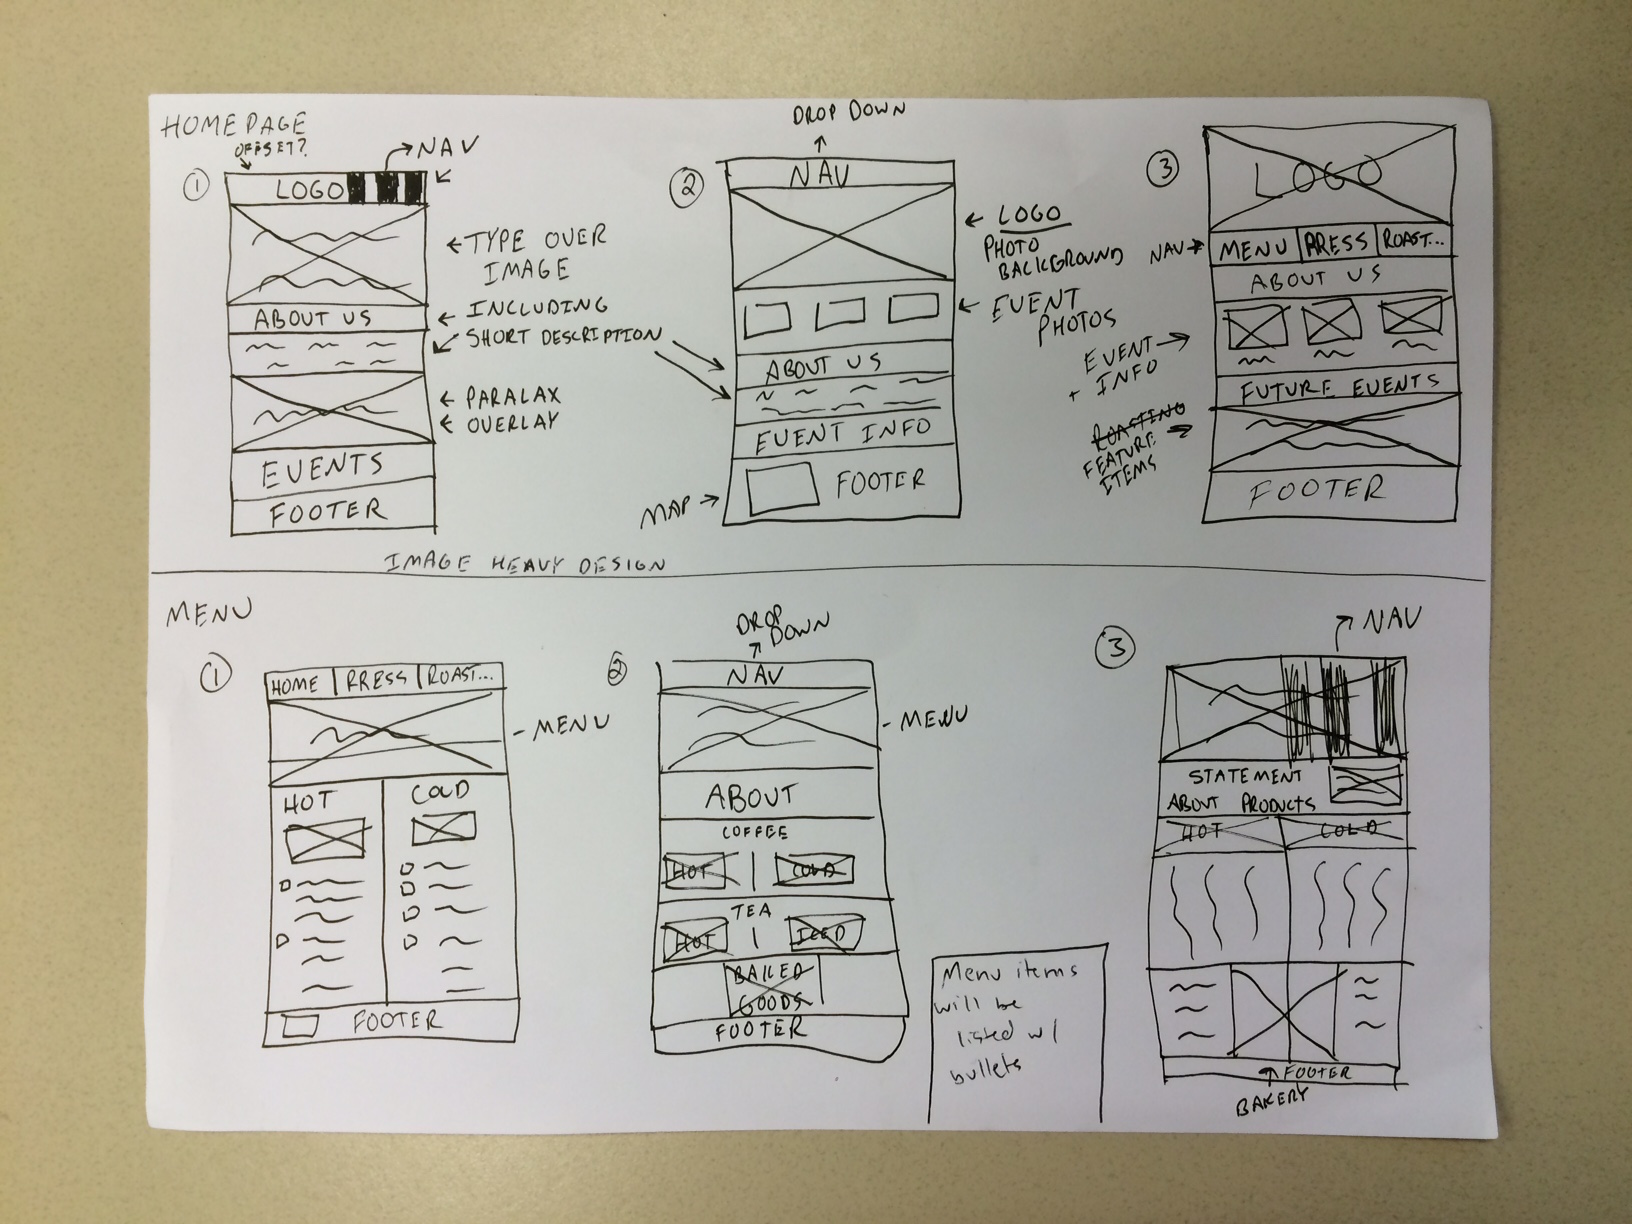 HOMEPAGE
OFFSET?
NAV
1
LOGO
TYPE OVER
IMAGE
ABOUT US
INCLUDING
SHORT DESCRIPTION
PARALAX
OVERLAY
EVENTS
FOOTER
DROP DOWN
2
NAV
LOGO
PHOTO
BACKGROUND
EVENT
PHOTOS
ABOUT US
EVENT INFO
MAP
FOOTER
3
LOGO
NAV
MENU PRESS ROAST...
ABOUT US
EVENT
+ INFO
FUTURE EVENTS
ROASTING
FEATURE
ITEMS
FOOTER
IMAGE HEAVY DESIGN
MENU
1
HOME PRESS ROAST...
MENU
HOT COLD
FOOTER
DROP
DOWN
2
NAV
MENU
ABOUT
COFFEE
HOT COLD
TEA
HOT ICED
BAKED
GOODS
FOOTER
Menu items
will be
listed w/
bullets
3
NAV
STATEMENT
ABOUT PRODUCTS
HOT COLD
FOOTER
BAKERY